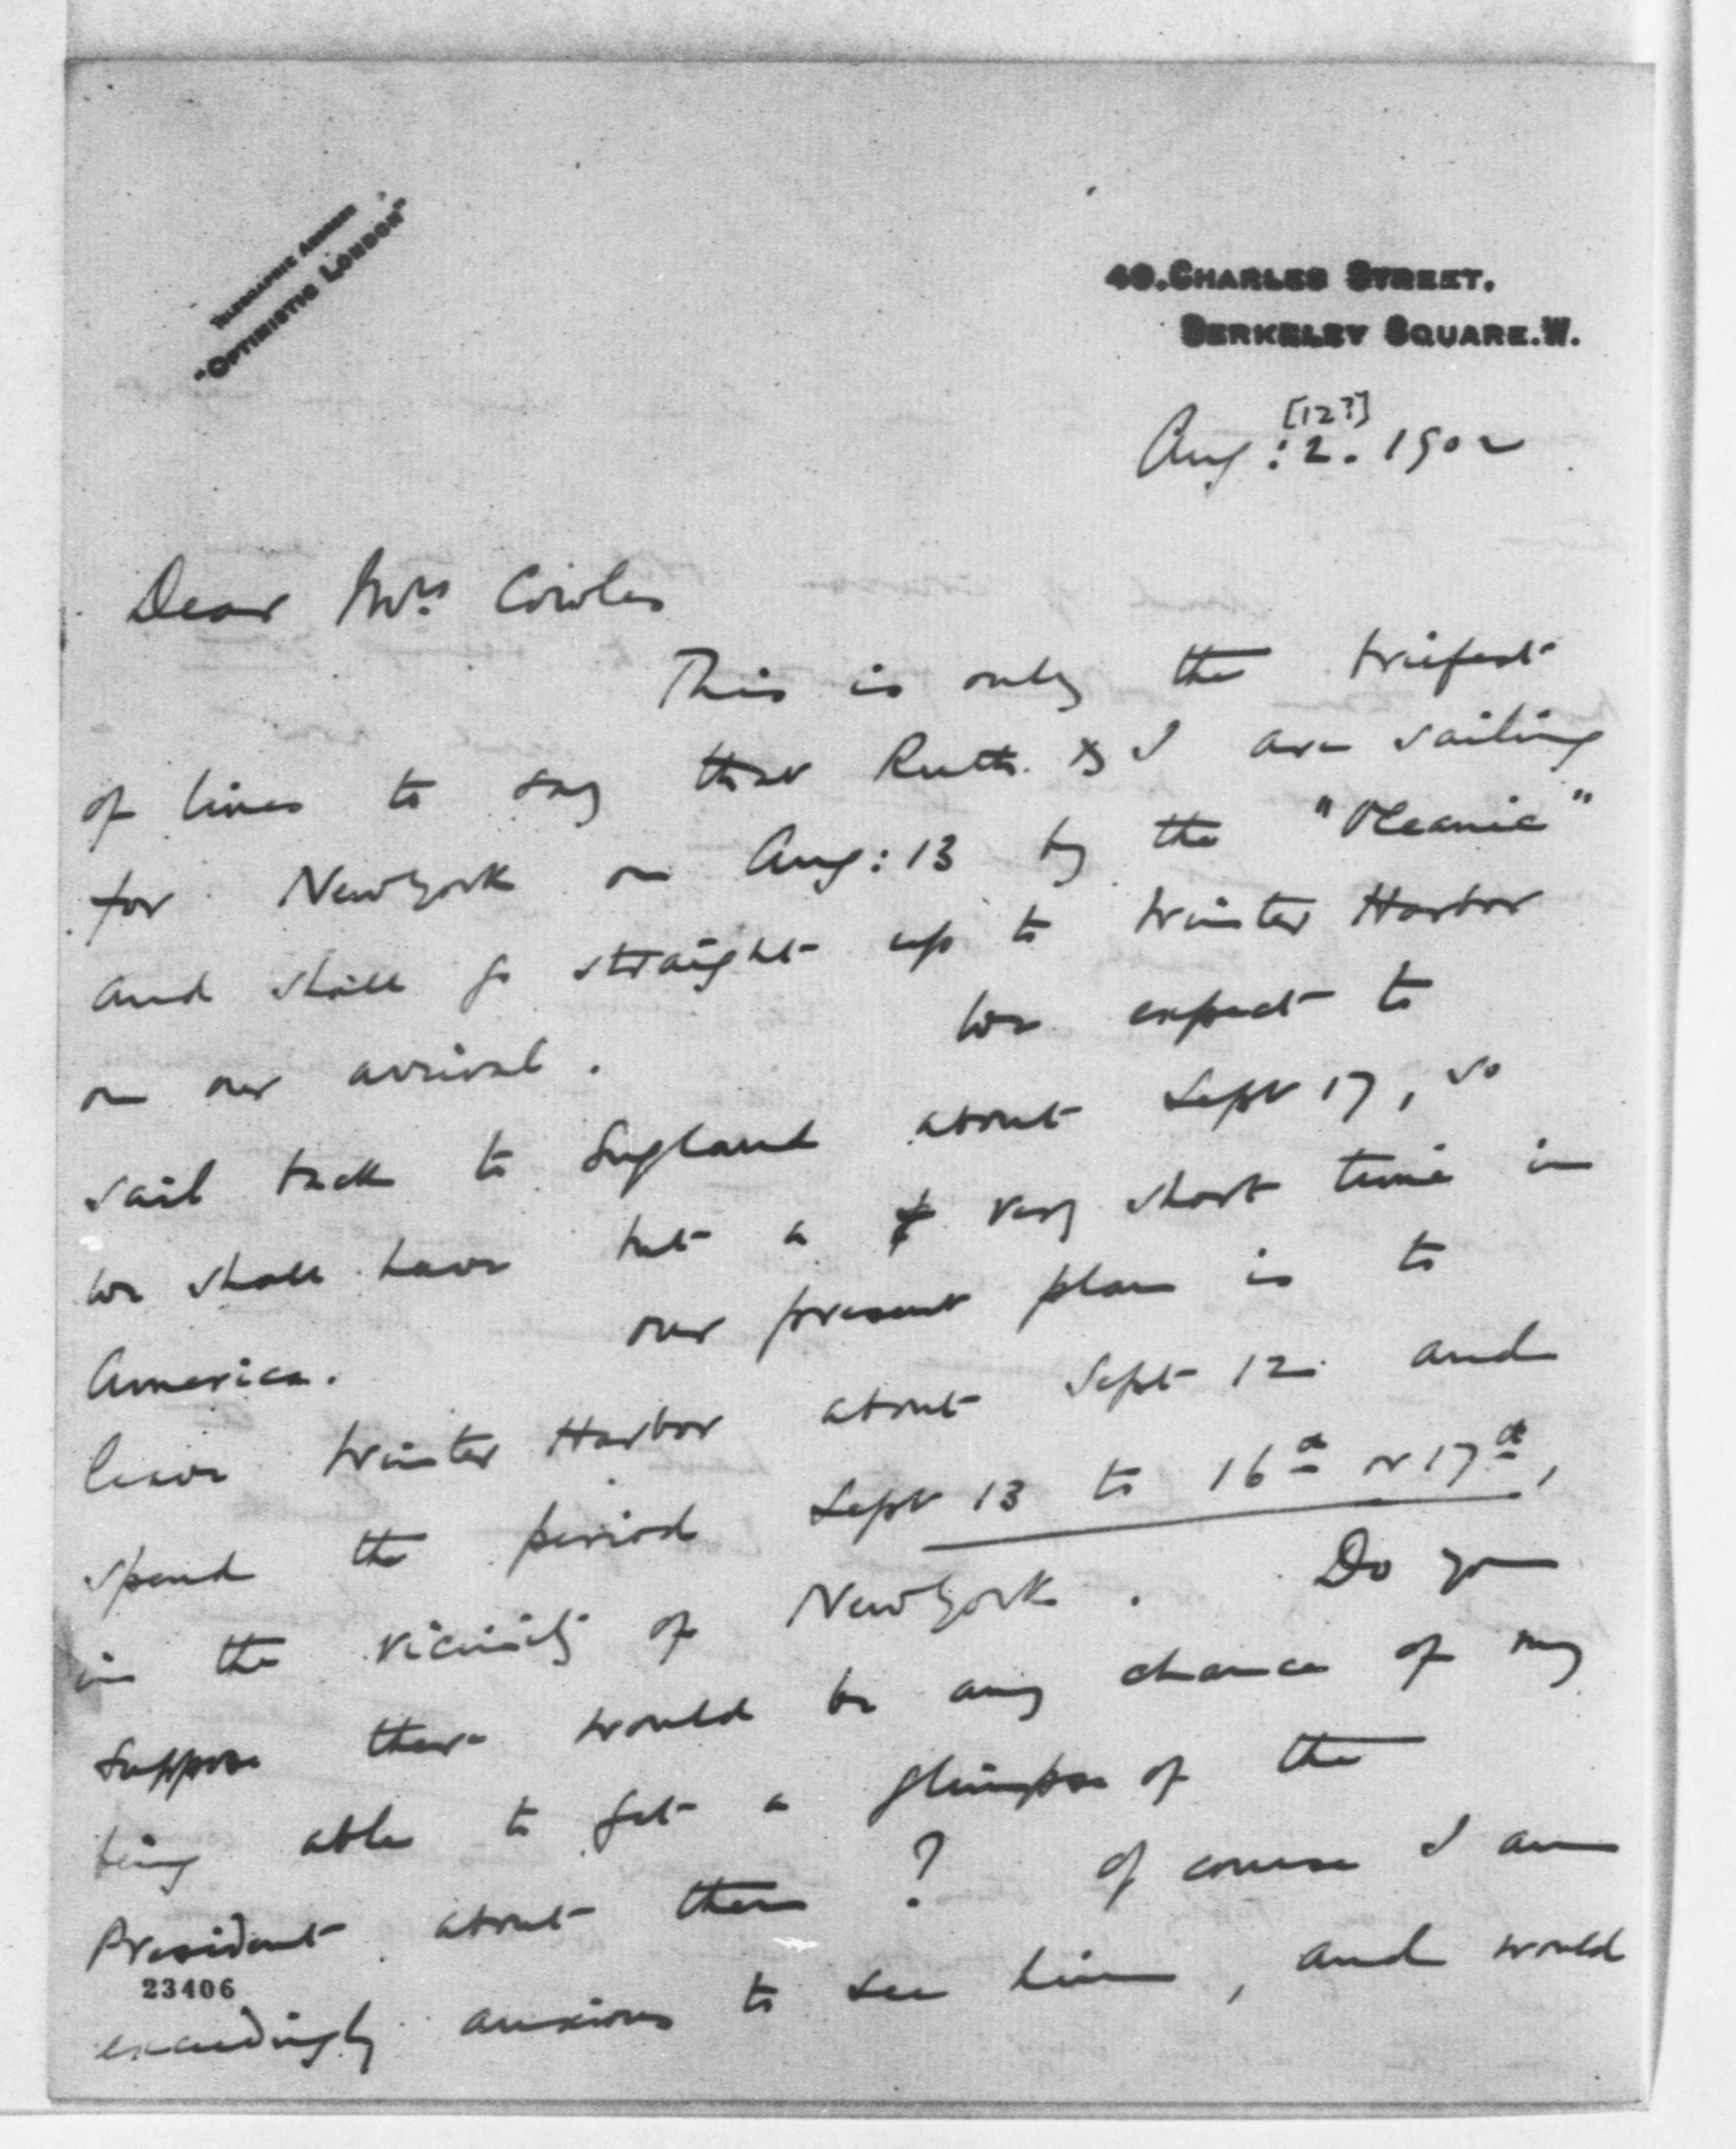 Telegraphic Address
"Optimistic London"
49. Charles Street.
Berkeley Square. W.
[12?]
Aug: 2. 1902
Dear Mrs. Cowles
This is only the briefest
of lines to say that Ruth & I are sailing
for New York on Aug: 13 by the "Oceanic"
and shall go straight up to Winter Harbor
on our arrival. We expect to
sail back to England about Sept 17, so
we shall have but a very short time in
America. Our present plan is to
leave Winter Harbor about Sept 12 and
spend the period Sept 13 to 16th or 17th,
in the vicinity of New York. Do you
suppose there would be any chance of my
being able to get a glimpse of the
President about then? Of course I am
23406
exceedingly anxious to see him, and would